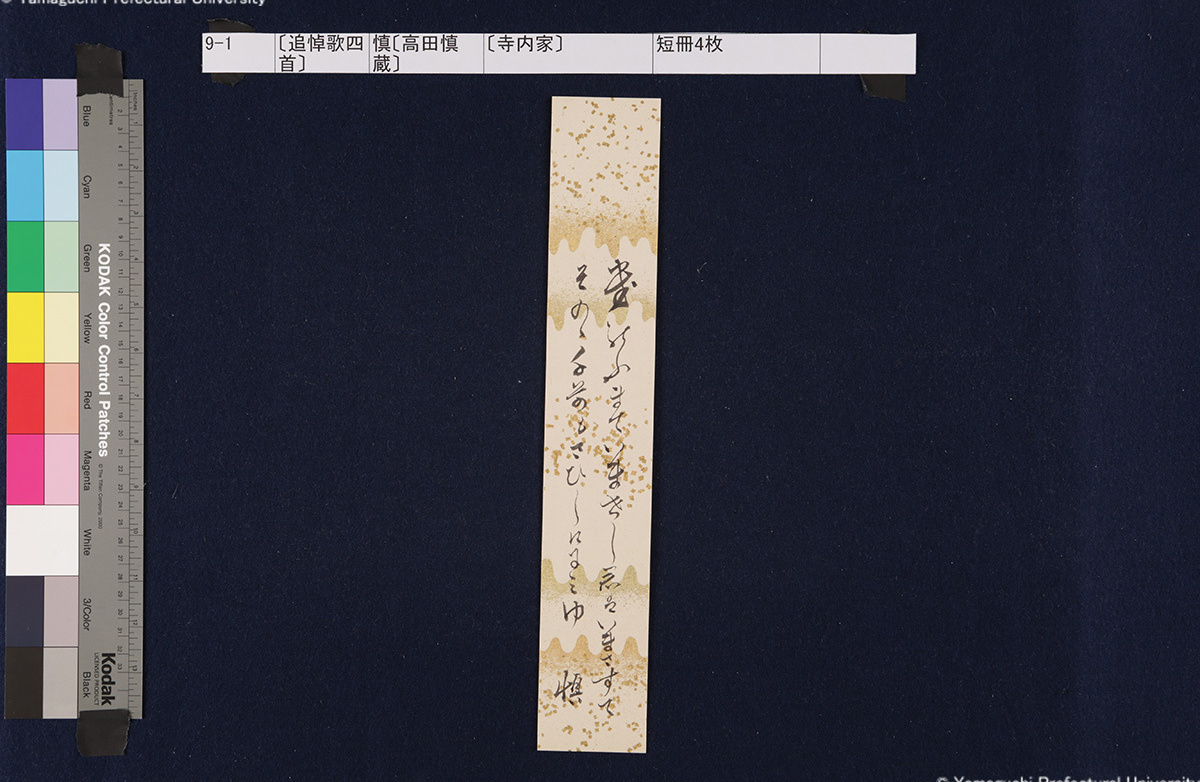 © Yamaguchi Prefectural University
9-1
〔追悼歌四首〕
慎〔高田慎蔵〕
〔寺内家〕
短冊4枚
まていませし君はいまさすて
その千草もさひしけにみゆ
慎
Blue
Cyan
Green
Yellow
Red
Magenta
White
3/Color
Black
KODAK Color Control Patches
© The Tiffen Company, 2000
Kodak
LICENSED PRODUCT
centimetres
inches
© Yamaguchi Prefectural University